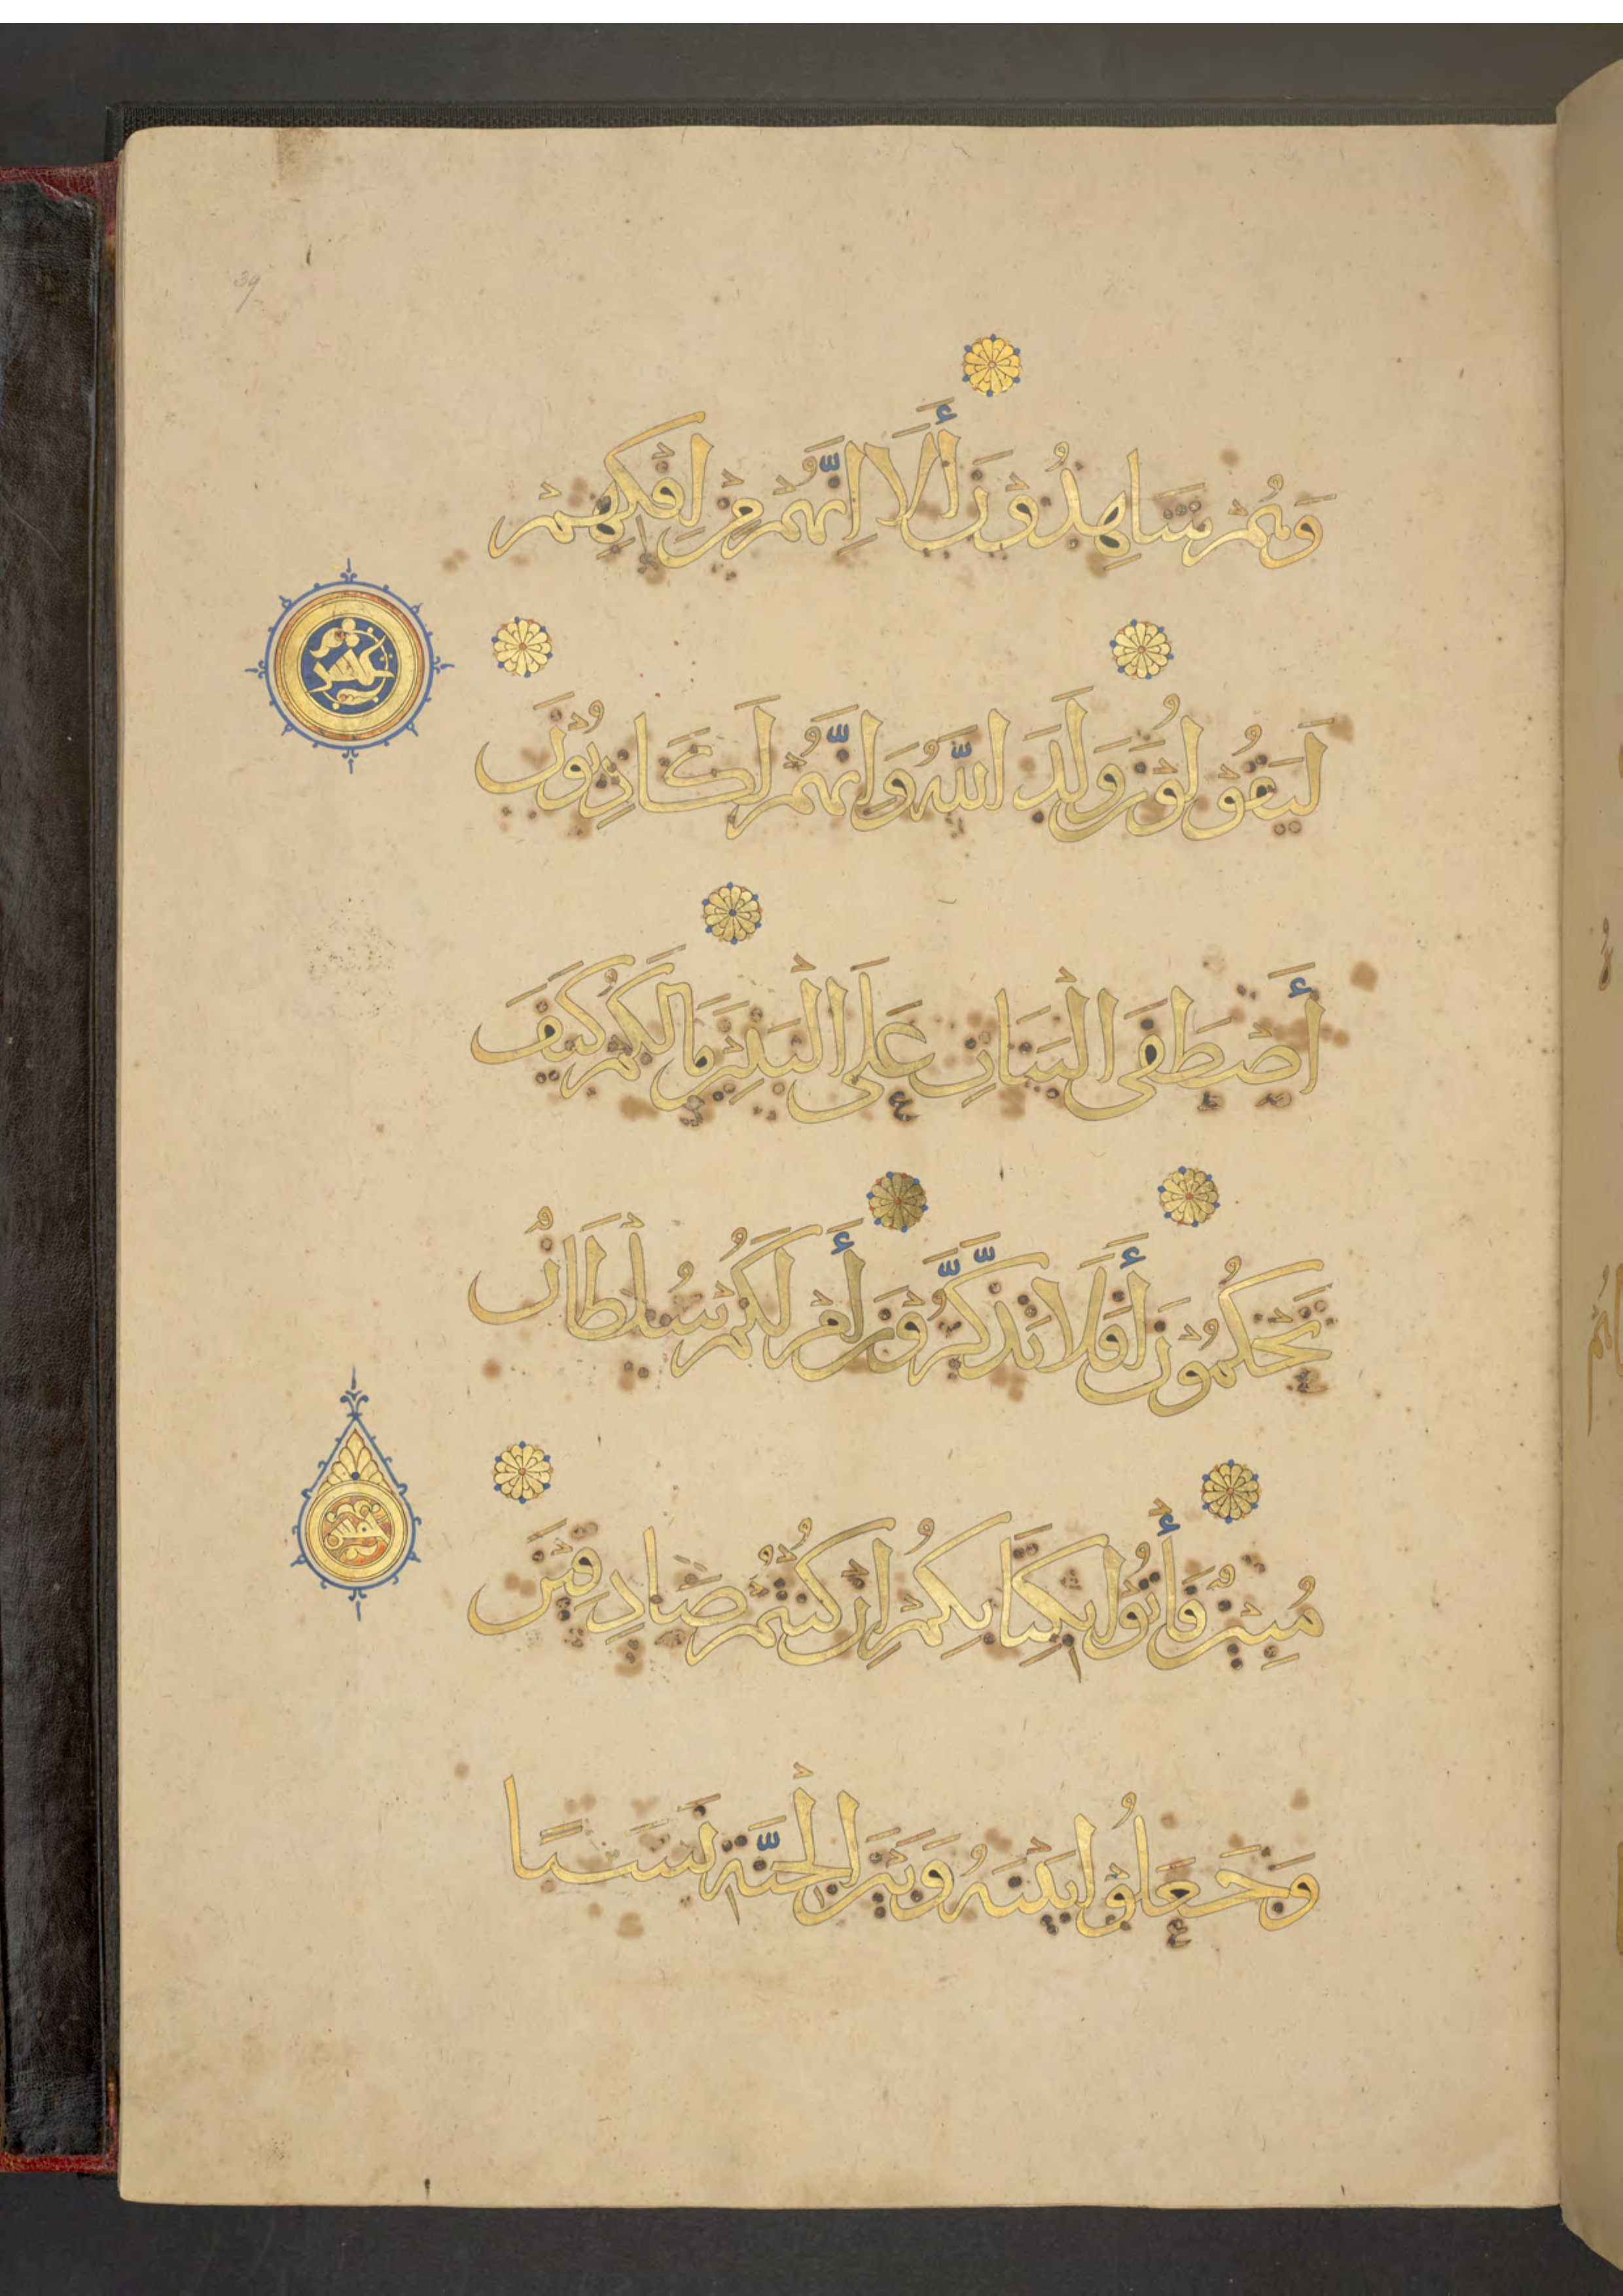 39
وَهُمْ شَاهِدُوْنَ أَلَا إِنَّهُمْ مِنْ إِفْكِهِمْ
لَيَقُوْلُوْنَ وَلَدَ اللَّهُ وَإِنَّهُمْ لَكَاذِبُوْنَ
عشر
أَصْطَفَى الْبَنَاتِ عَلَى الْبَنِيْنَ مَا لَكُمْ كَيْفَ
تَحْكُمُوْنَ أَفَلَا تَذَّكَّرُوْنَ أَمْ لَكُمْ سُلْطَانٌ
مُبِيْنٌ فَأْتُوْا بِكِتَابِكُمْ إِنْ كُنْتُمْ صَادِقِيْنَ
خمس
وَجَعَلُوْا بَيْنَهُ وَبَيْنَ الْجِنَّةِ نَسَبًا